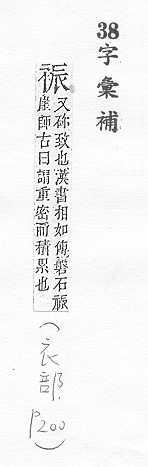 38字彙補
裖
又致也漢書相如傳磐石裖
崖師古曰謂重密而積累也
(衣部 P200)